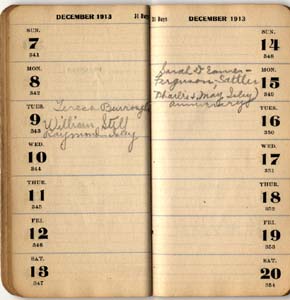 DECEMBER 1913
31 Days
SUN.
7
341
MON.
8
342
Teresa Burroughs
TUES.
9
343
William Still
Raymond Isby
WED.
10
344
THUR.
11
345
FRI.
12
346
SAT.
13
347
31 Days
DECEMBER 1913
SUN.
14
348
Sarah D
MON.
15
349
Ferguson, Settles
Charlie & May Isby
anniversary
TUES.
16
350
WED.
17
351
THUR.
18
352
FRI.
19
353
SAT.
20
354